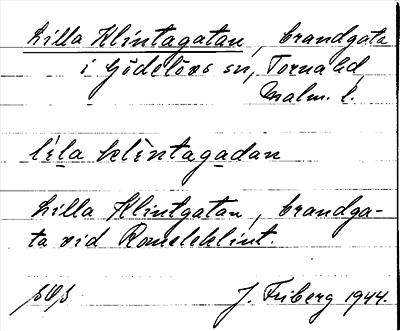 Lilla Klintagatan, brandgata
i Gödelövs sn, Torna hd,
Malm. l.
lila klintagadan
Lilla Klintgatan, brandga-
ta vid Romeleklint.
J. Friberg 1944.